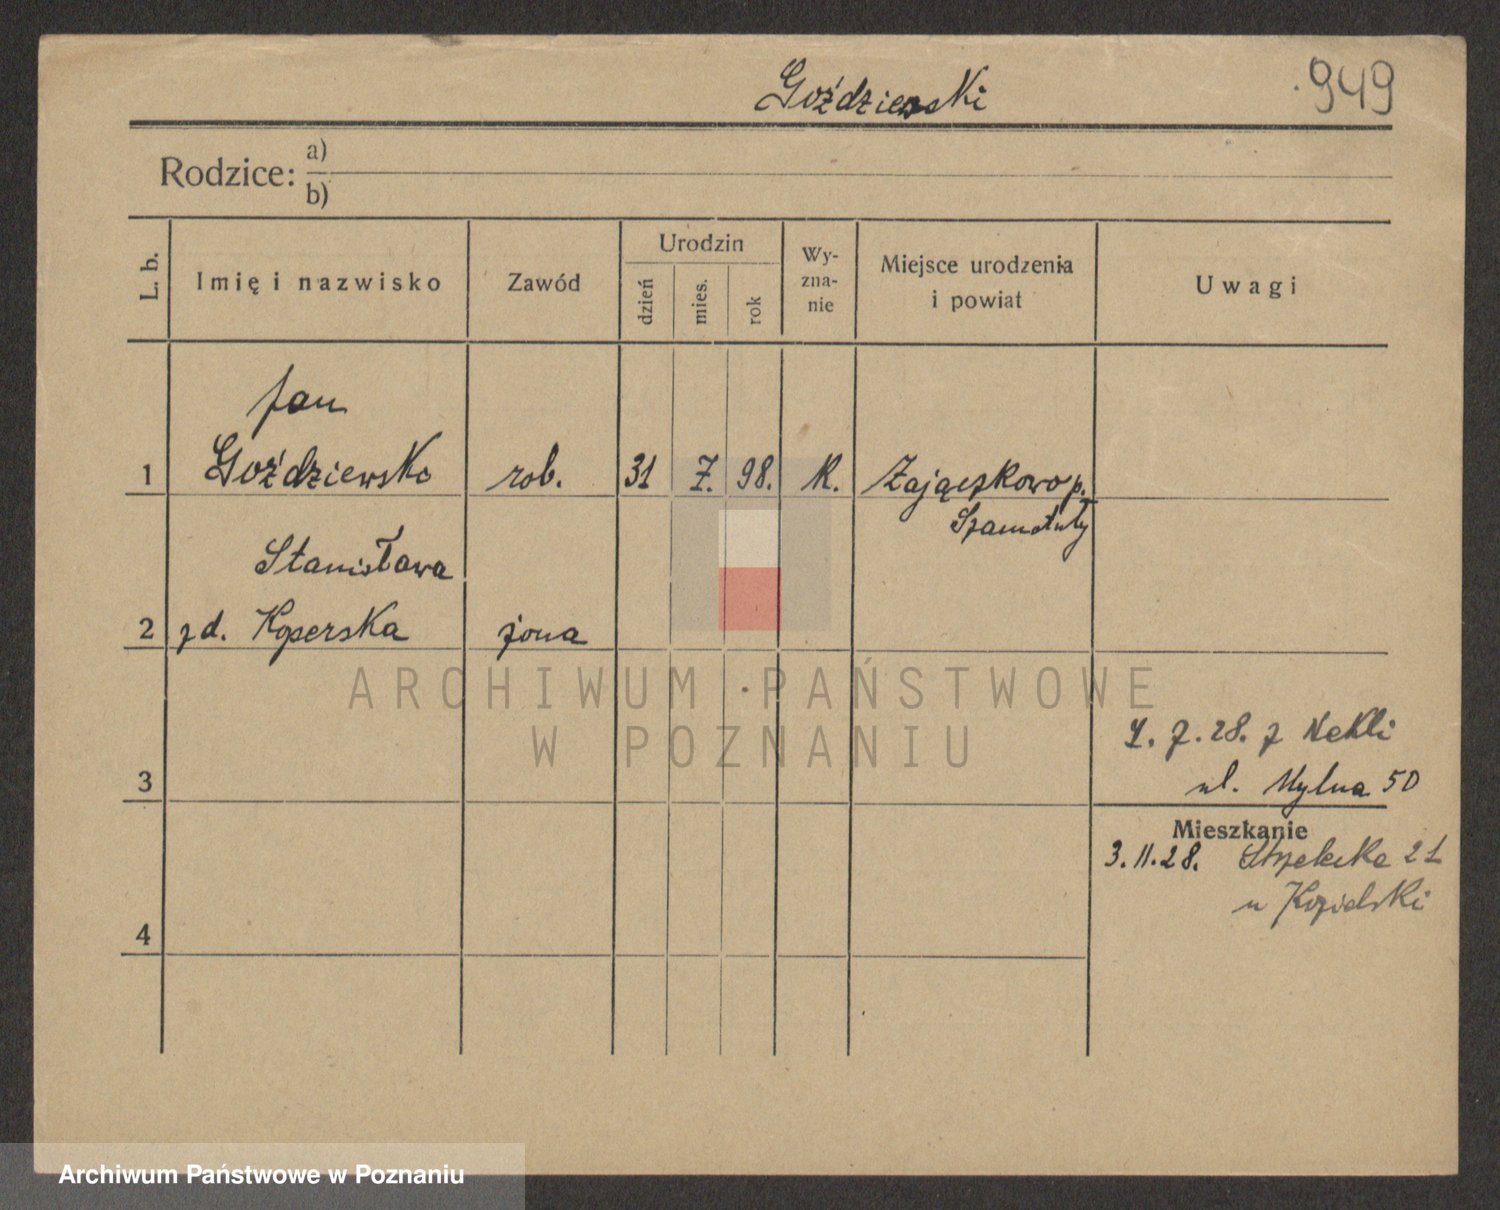 Goździewski
949
Rodzice: a)
b)
L. b.
Imię i nazwisko
Zawód
Urodzin
dzień
mies.
rok
Wy-
zna-
nie
Miejsce urodzenia
i powiat
Uwagi
Jan
1 Goździewski rob. 31 7. 98. K. Zajączkowo p.
Szamotuły
Stanisława
2 zd. Koperska żona
ARCHIWUM PAŃSTWOWE
W POZNANIU
7.28. z Nekli
3 ul. Mylna 50
Mieszkanie
3.11.28. Strzelecka 21
u Kozielski
4
Archiwum Państwowe w Poznaniu